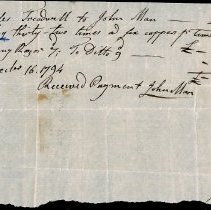 les Treadwell to John Man
g thirty two times at six coppers pr time
Ditto 9
16. 1794
Received Payment John Man